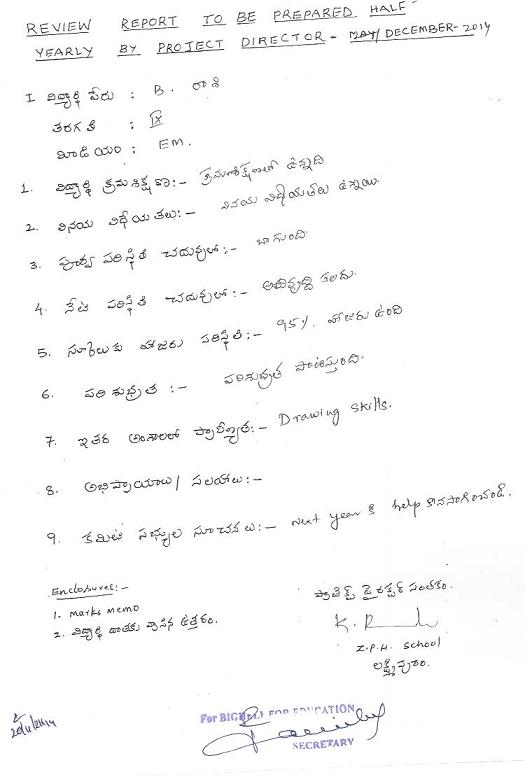 REVIEW REPORT TO BE PREPARED HALF
YEARLY BY PROJECT DIRECTOR - MAY/DECEMBER-2014
I విద్యార్థి పేరు : B. రాశి
తరగతి : IX
మీడియం : EM.
1. విద్యార్థి క్రమశిక్షణ:- క్రమశిక్షణతో ఉన్నది
2. వినయ విధేయతలు:- వినయ విధేయతలు ఉన్నాయి.
3. పూర్వ పరిస్థితి చదువులో:- బాగుంది.
4. నేటి పరిస్థితి చదువులో:- అభివృద్ధి కలదు.
5. స్కూలుకు హాజరు పరిస్థితి:- 95%. హాజరు ఉంది
6. పరిశుభ్రత :- పరిశుభ్రత పాటిస్తుంది.
7. ఇతర అంశాలలో ప్రావీణ్యత:- Drawing Skills.
8. అభిప్రాయాలు/ సలహాలు:-
9. కమిటీ సభ్యుల సూచనలు:- Next year కి help కొనసాగించండి.
Enclosures:-
1. Marks Memo
2. విద్యార్థి దాతకు వ్రాసిన ఉత్తరం.
ప్రాజెక్ట్ డైరక్టర్ సంతకం.
Z.P.H. School
లక్ష్మీపురం.
FOR EDUCATION
SECRETARY